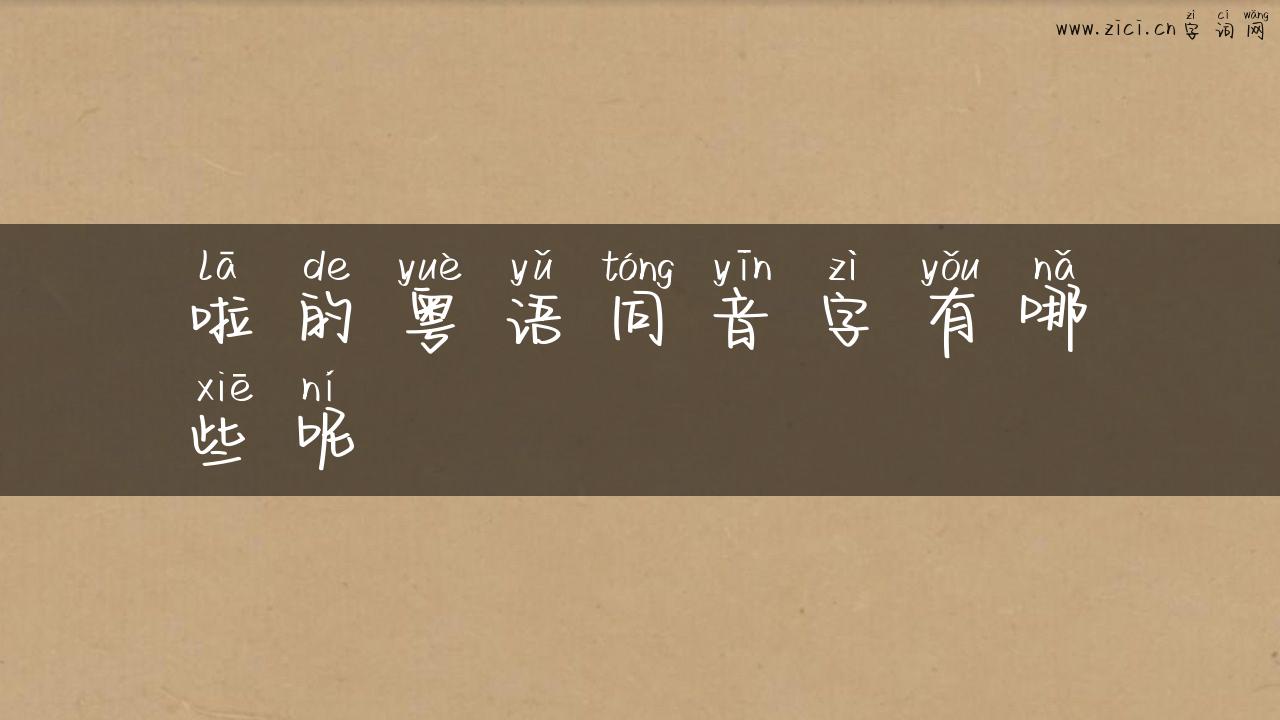 zì cí wǎng
www.zici.cn 字词网
lā de yuè yǔ tóng yīn zì yǒu nǎ
啦的粤语同音字有哪
xiē ní
些呢